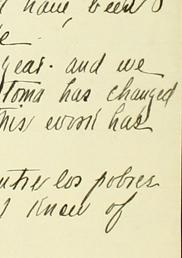 have been
year. and we
toma has changed
this work has
entre los pobres
I know of